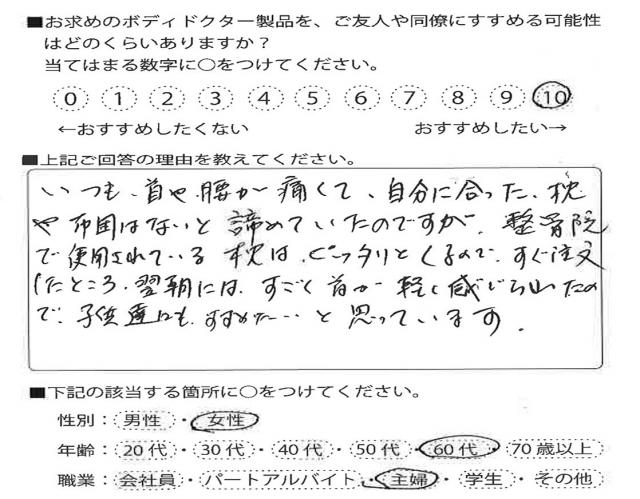 ■お求めのボディドクター製品を、ご友人や同僚にすすめる可能性
はどのくらいありますか？
当てはまる数字に○をつけてください。
0 1 2 3 4 5 6 7 8 9 10
←おすすめしたくない おすすめしたい→
■上記ご回答の理由を教えてください。
いつも、首や、腰が痛くて、自分に合った、枕
や布団はないと諦めていたのですが、整骨院
で使用されている枕は、ピッタリとくるので、すぐ注文
したところ、翌朝には、すごく首が軽く感じられたの
で、子供達にも、すすめたい…と思っています。
■下記の該当する箇所に○をつけてください。
性別：男性・女性
年齢：20代・30代・40代・50代・60代・70歳以上
職業：会社員・パートアルバイト・主婦・学生・その他